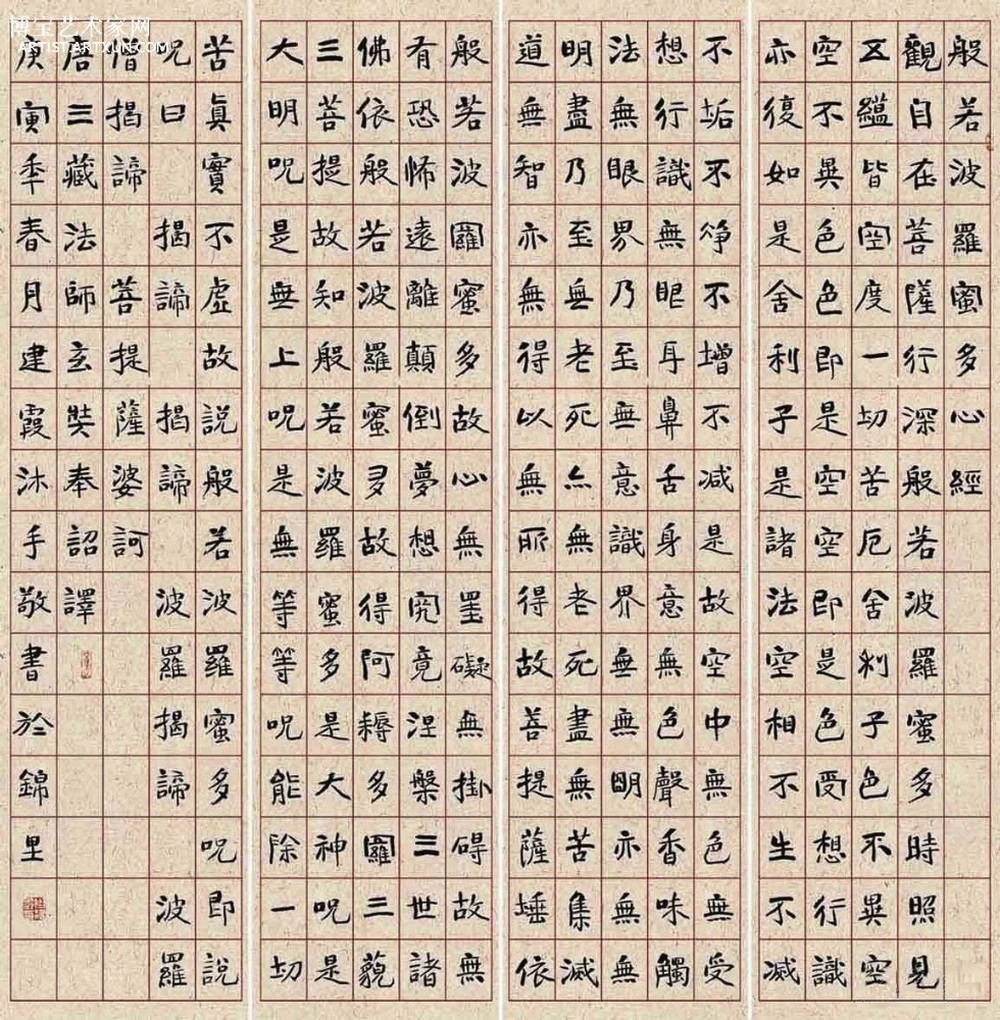 博宝艺术家网
ARTIST.ARTXUN.COM
般若波羅蜜多心經
觀自在菩薩行深般若波羅蜜多時照見
五蘊皆空度一切苦厄舍利子色不異空
空不異色色即是空空即是色受想行識
亦復如是舍利子是諸法空相不生不滅
不垢不淨不增不減是故空中無色無受
想行識無眼耳鼻舌身意無色聲香味觸
法無眼界乃至無意識界無無明亦無無
明盡乃至無老死亦無老死盡無苦集滅
道無智亦無得以無所得故菩提薩埵依
般若波羅蜜多故心無罣礙無掛碍故無
有恐怖遠離顛倒夢想究竟涅槃三世諸
佛依般若波羅蜜多故得阿耨多羅三藐
三菩提故知般若波羅蜜多是大神呪是
大明呪是無上呪是無等等呪能除一切
苦眞實不虛故說般若波羅蜜多呪即說
呪曰 揭諦 揭諦 波羅揭諦 波羅
僧揭諦 菩提薩婆訶
唐三藏法師玄奘奉詔譯
庚寅年春月建霞沐手敬書於錦里